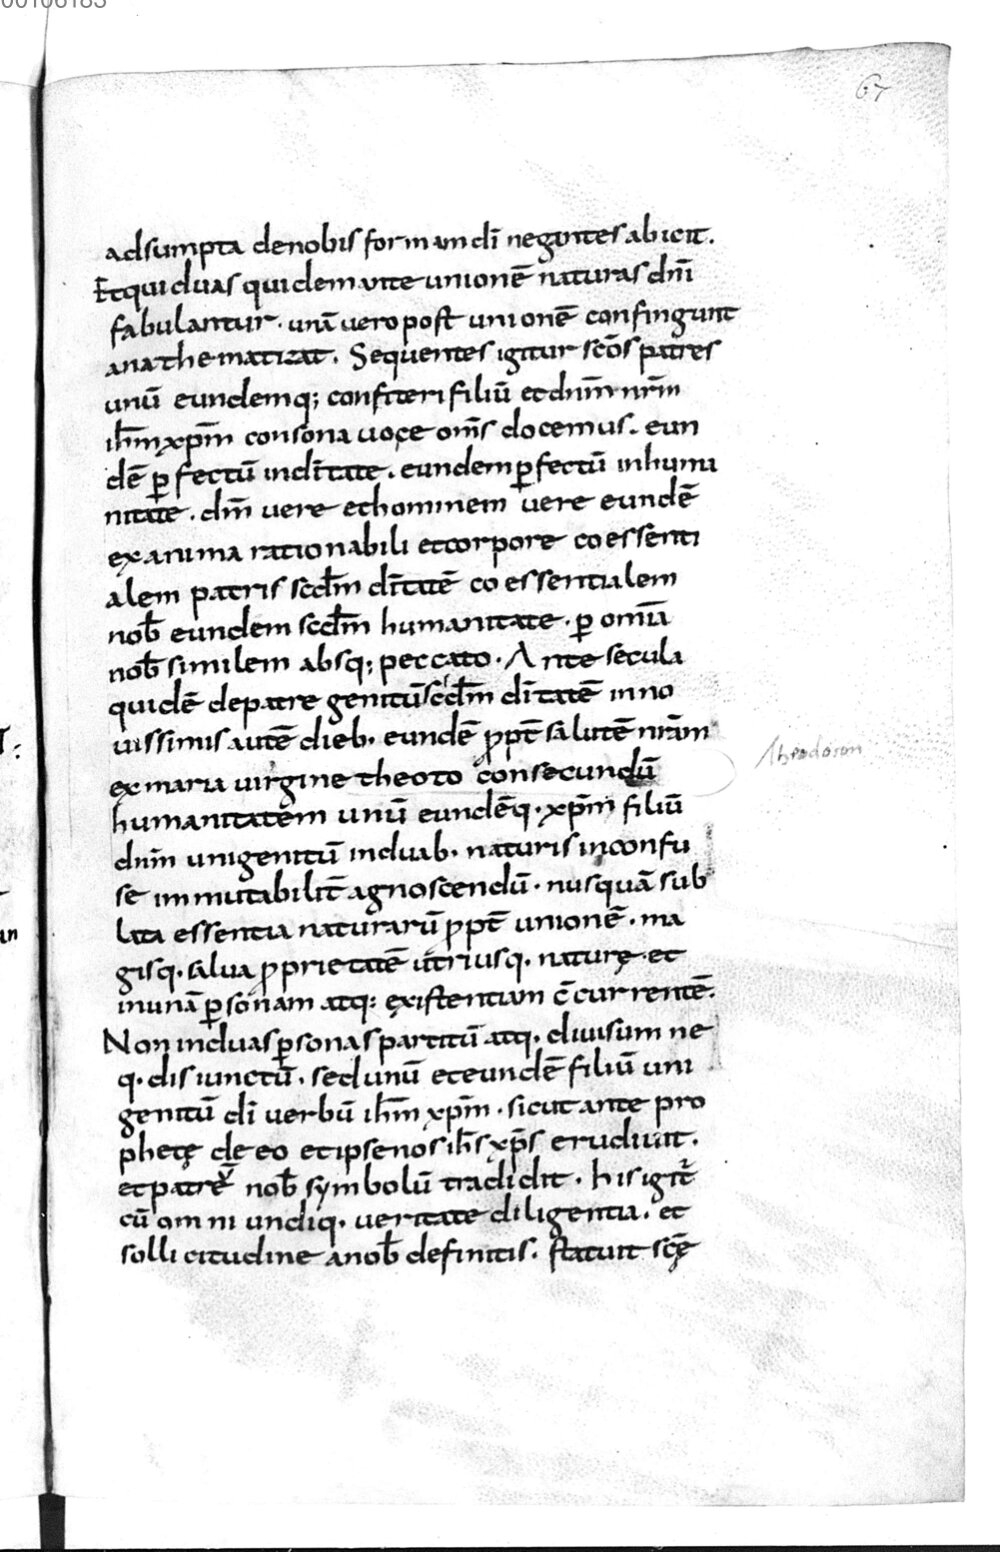 00106183
67
adsumpta denobis formam dī negantes abicit.
Et qui duas quidem ante unionē naturas dn̄i
fabulantur · unā vero post unionē confingunt
anathematizat. Sequentes igitur sc̄ōs patres
unū eundemq; confiteri filiū et dnm̄ nrm̄
ihm̄ xpm̄ consona uoce oms̄ docemus. eun
dē ꝑfectū indītate. eundem ꝑfectū inhuma
nitate. dm̄ vere et hominem vere eundē
ex anima rationabili et corpore coessenti
alem patris scdm̄ dītatē coessentialem
nob̄ eundem scdm̄ humanitate · ꝑ omīa
nob̄ similem absq; peccato · Ante secula
quidē de patre genitū scdm̄ dītatē inno
uissimis autē dieb · eundē ꝓpt̄ salutē nrām
ex maria virgine theoto con secundū
humanitatem unū eundēq · xpm̄ filiū
dnm̄ unigenitū induab · naturis inconfu
se immutabilit̄ agnoscendū · nusquā sub
lata essentia naturarū ꝓpt̄ unionē · ma
gisq · salua ꝓprietatē utriusq · naturę · et
inunā ꝑsonam atq; existentiam c̄currentē.
Non induas ꝑsonas partitū atq · diuisum ne
q · disiunctū · sed unū et eundē filiū uni
genitū dī verbū ihm̄ xpm̄ · sicut ante pro
phetę de eo et ipse nos ihs̄ xps̄ erudiuit.
et patrē nob̄ symbolū tradidit · his igit̄
cū omni undiq · veritate diligentia. et
sollicitudine anob̄ definitis. statuit scę̄